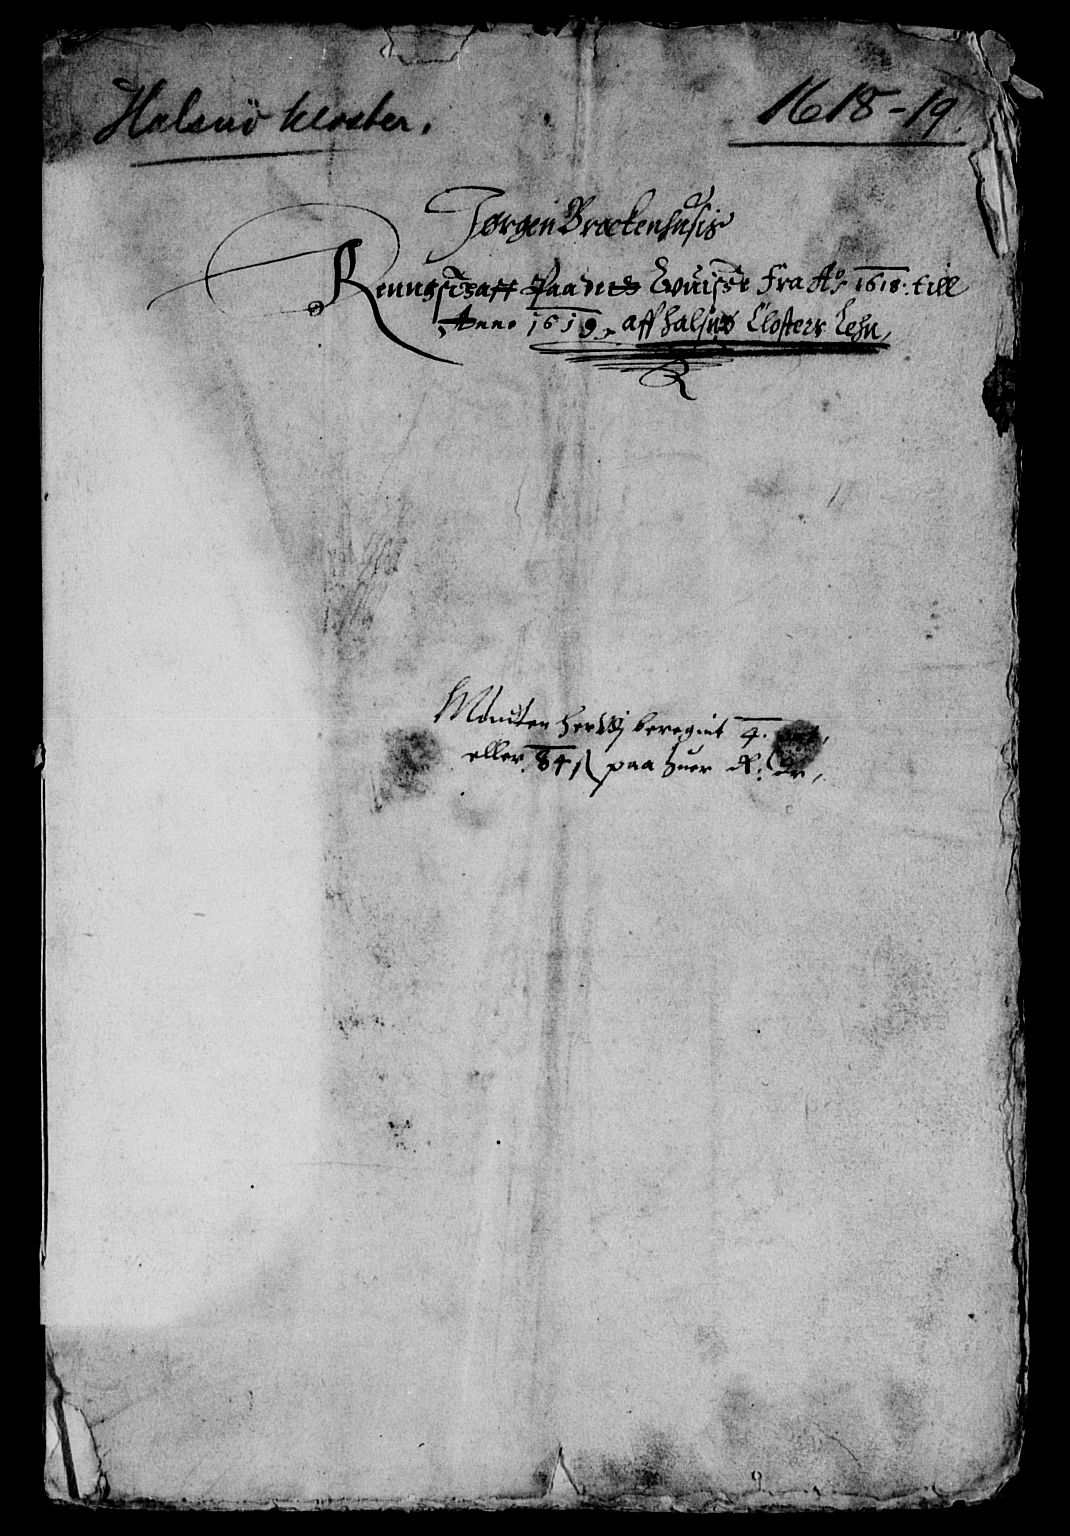 Halsnö kloster.
1618-19.
Jørgen Brockenhusis
Renngschaff Paa dett Wuisse Fra Aº 1618. till
Anno 1619, aff halsnø Closters Lehn,
Mønten her Vdj beregint 4.
eller 84 ß paa huer R: dr,